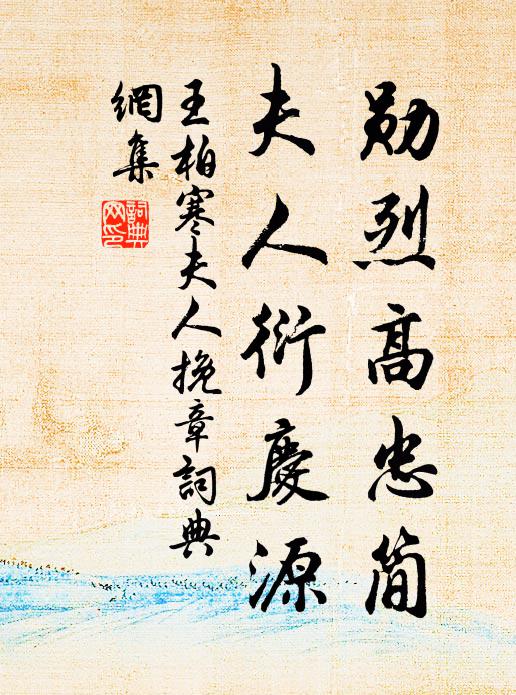 勛烈高忠簡
夫人衍慶源
王柏寒夫人挽章詞典
網集
詞典
网印